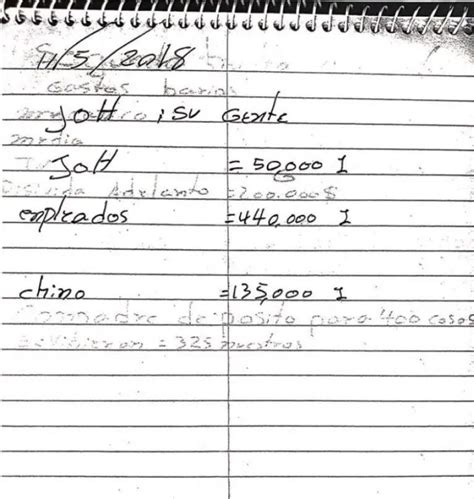 11/5/2018
Gastos barios
JOH i SU Gente
media
JOH = 50,000 I
Adelanto = 200.000$
enpleados = 440.000 I
chino = 135,000 I
Comadre deposito para 400 cosos
= 325 nuestros